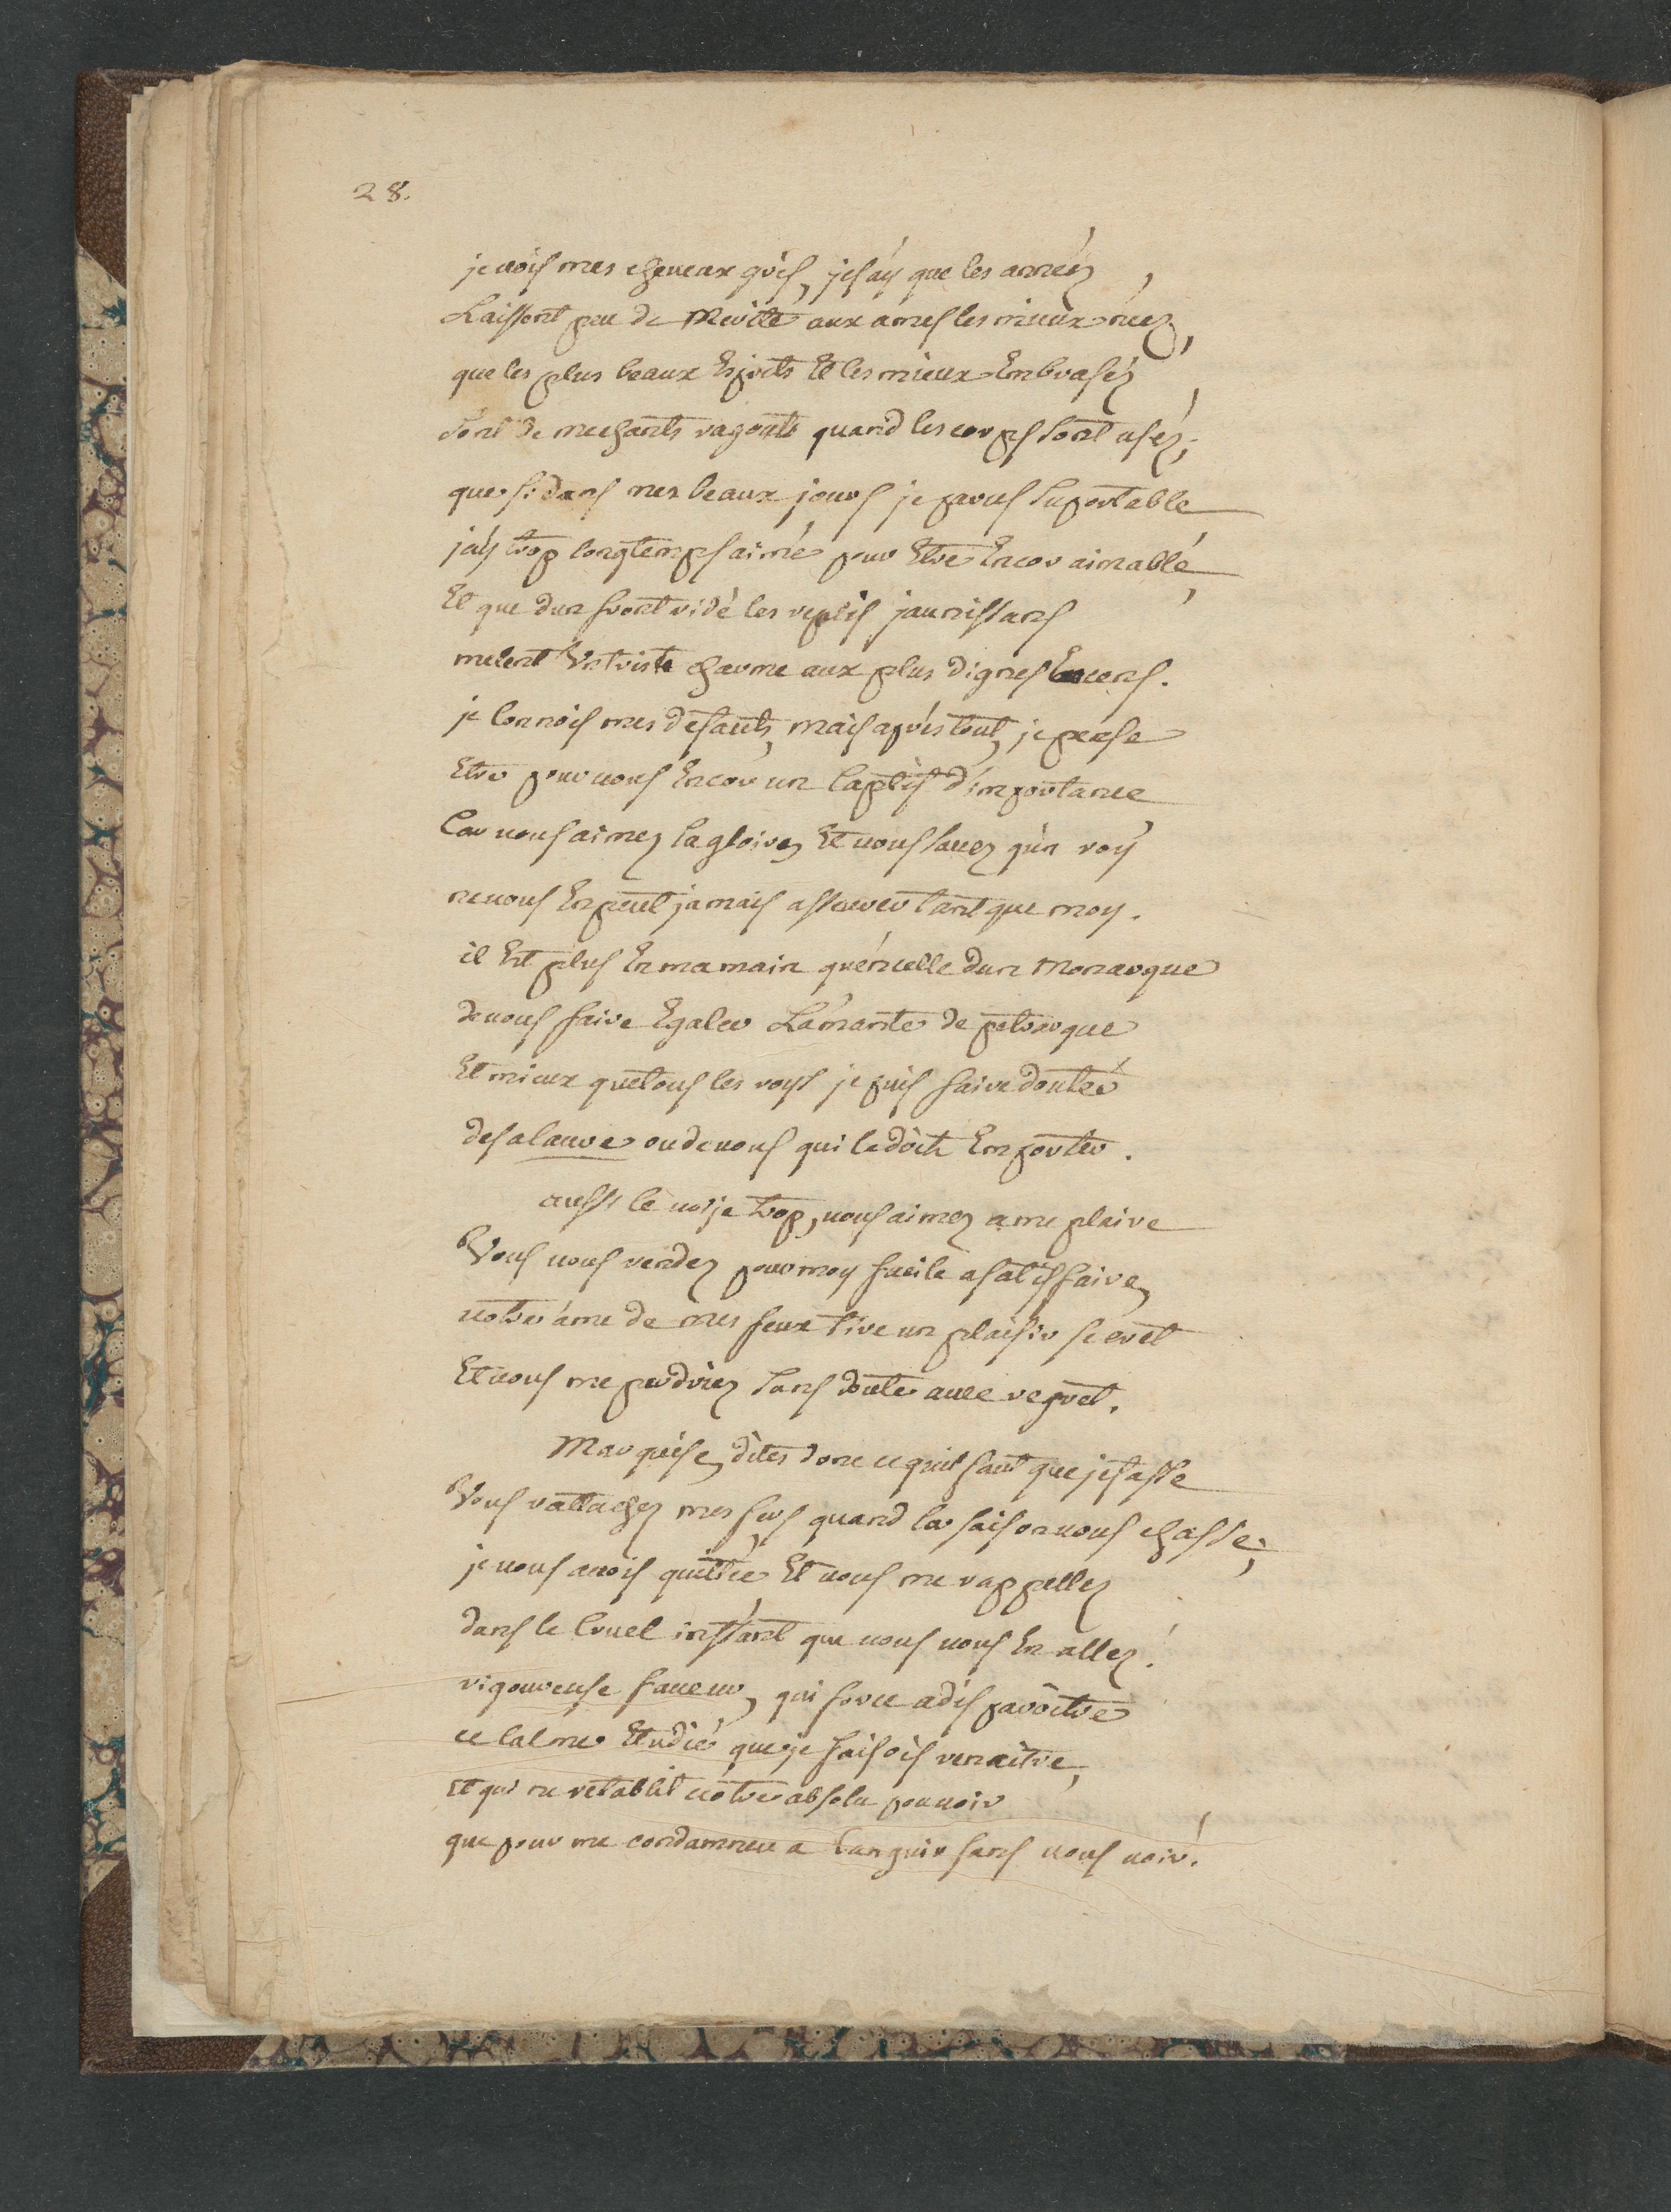 28.
je vois mes cheveux gris, je sáy que les années,
Laissent peu de Merite aux ames les mieux neez,
que les plus beaux Esprits Et les mieux Embrasés,
sont de mechants ragouts quand les corps sont usés;
que si dans mes beaux jours je parus suportable
j'ay trop longtemps aimé pour Etre Encor aimable,
Et que dun front ridé les replis jaunissans
melent Un triste charme aux plus dignes Encens.
je Connois mes defauts, mais aprés tout, je pense
Etre pour vous Encor un Captif d'importance
Car vous aimez la gloire, Et vous savez qu'n roy
ne vous En peut jamais assurer tant que moy.
il Est plus En ma main qu'en celle dun Monarque
de vous faire Egaler L'amante de petrarque
Et mieux que tous les roys je puis faire douter
de sa laure ou de vous qui le doit Emporter.
aussi le vois je trop, vous aimez a me plaire
Vous vous rendez pour moy facile a satisfaire,
votre ame de mes feux tire un plaisir secret
Et vous me perdriez sans doute avec regret.
Marquise, dites donc ce qu'il faut que je fasse
Vous rattachez mes fers quand la saison vous chasse;
je vous avois quittée Et vous me rappellez
dans le Cruel instant que vous vous En allez!
rigoureuse faveur, qui force a disparoitre
ce Calme Etudié que je faisois renaitre,
Et qui ne retablit votre absolu pouvoir
que pour me condamner a languir sans vous voir!